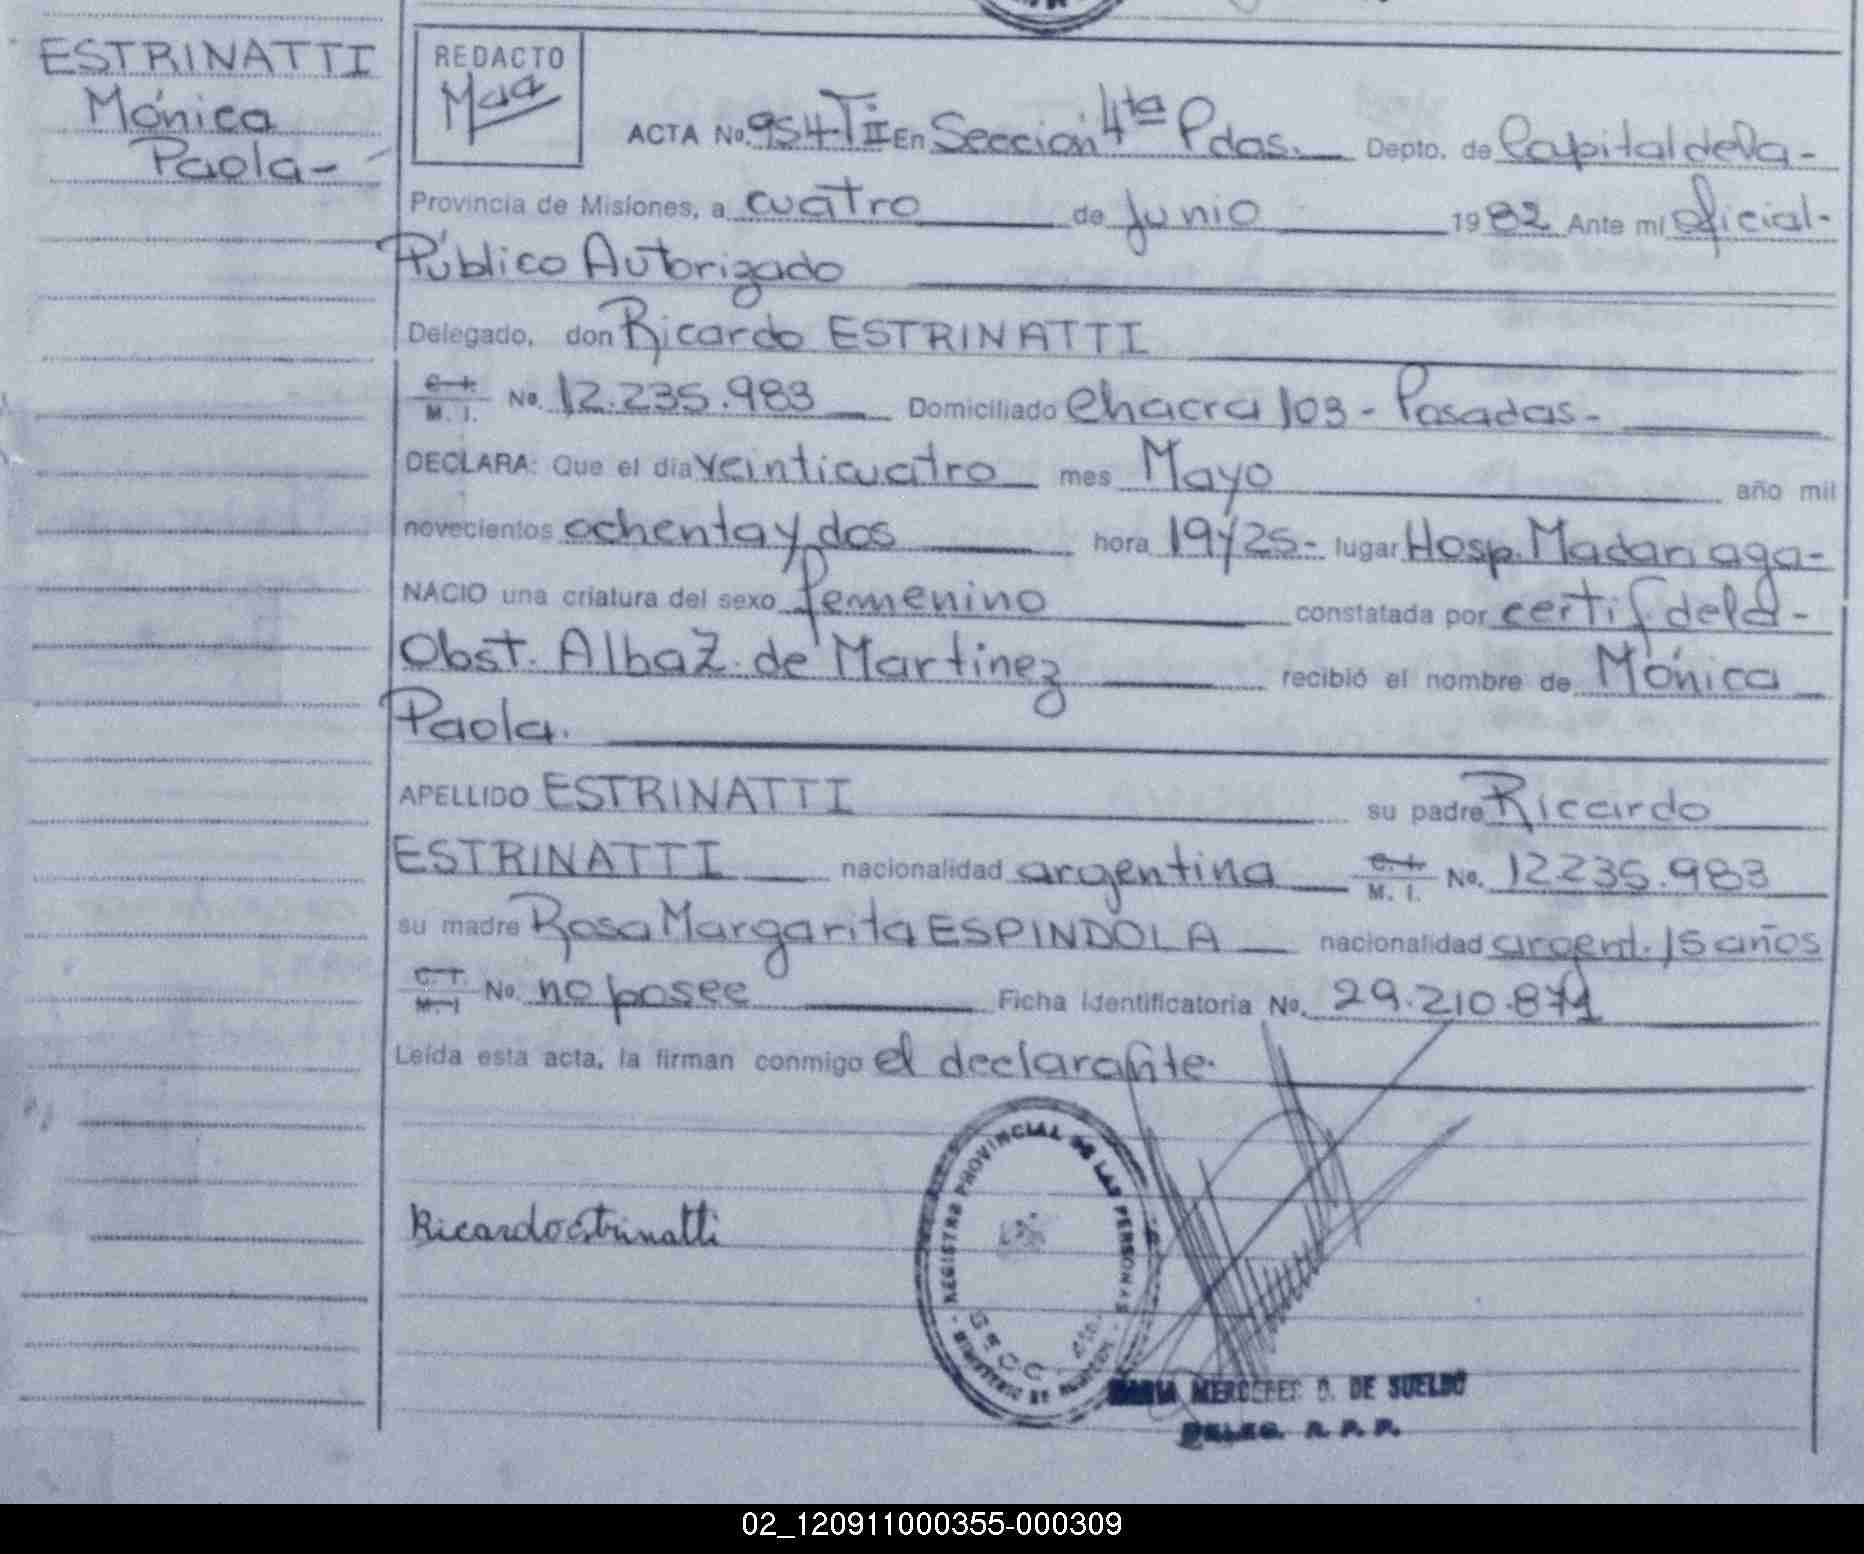 ESTRINATTI
Mónica
Paola-
REDACTO
ACTA No. 954 TII En Sección 4ta Pdas. Depto. de Capital de la-
Provincia de Misiones, a cuatro de Junio 1982 Ante mí Oficial-
Público Autorizado
Delegado, don Ricardo ESTRINATTI
C.I. M. I. No. 12.235.983 Domiciliado Chacra 103 - Posadas-
DECLARA: Que el día veinticuatro mes Mayo año mil
novecientos ochenta y dos hora 19y25- lugar Hosp. Madariaga-
NACIO una criatura del sexo femenino constatada por certif. de la-
Obst. Alba Z. de Martinez recibió el nombre de Mónica
Paola.
APELLIDO ESTRINATTI su padre Ricardo
ESTRINATTI nacionalidad argentina C.I. M. I. No. 12235.983
su madre Rosa Margarita ESPINDOLA nacionalidad argent. 15 años
C.I. M.I No. no posee Ficha Identificatoria No. 29.210.871
Leída esta acta, la firman conmigo el declarante.
Ricardo estrinatti
REGISTRO PROVINCIAL DE LAS PERSONAS
SECC. 4ta.
MINISTERIO DE
MARIA MERCEDES D. DE SUELDO
DELEG. R. P. P.
02_120911000355-000309